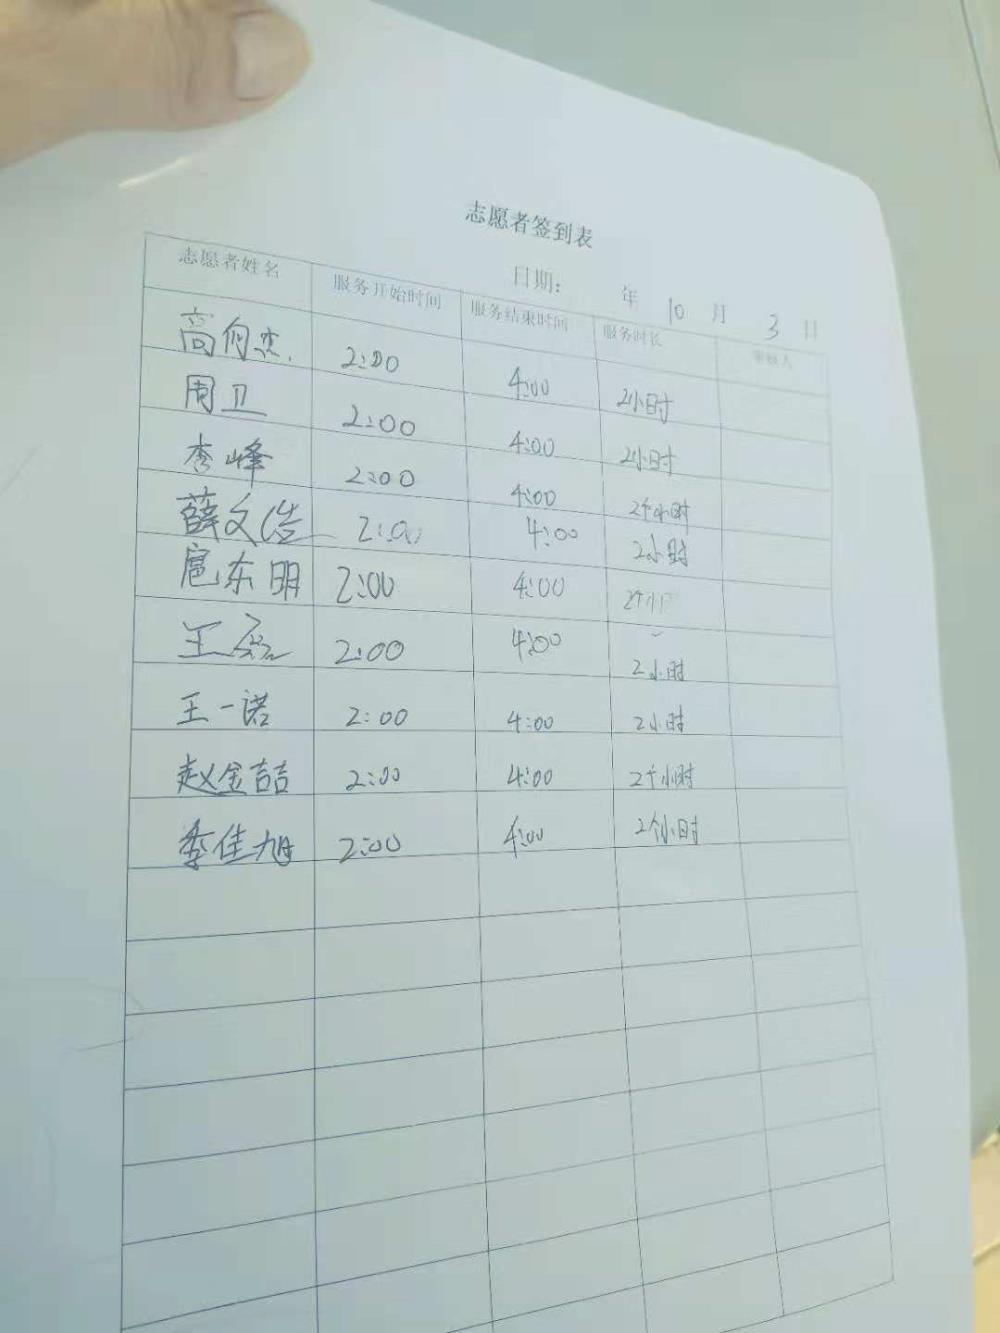 志愿者签到表
日期： 年 10 月 3 日
志愿者姓名 服务开始时间 服务结束时间 服务时长 审核人
高向杰 2:00 4:00 2小时
周卫 2:00 4:00 2小时
李峰 2:00 4:00 2个小时
薛文浩 2:00 4:00 2小时
扈东明 2:00 4:00 2个小时
王磊 2:00 4:00 2小时
王一诺 2:00 4:00 2小时
赵金喆 2:00 4:00 2个小时
季佳旭 2:00 4:00 2个小时